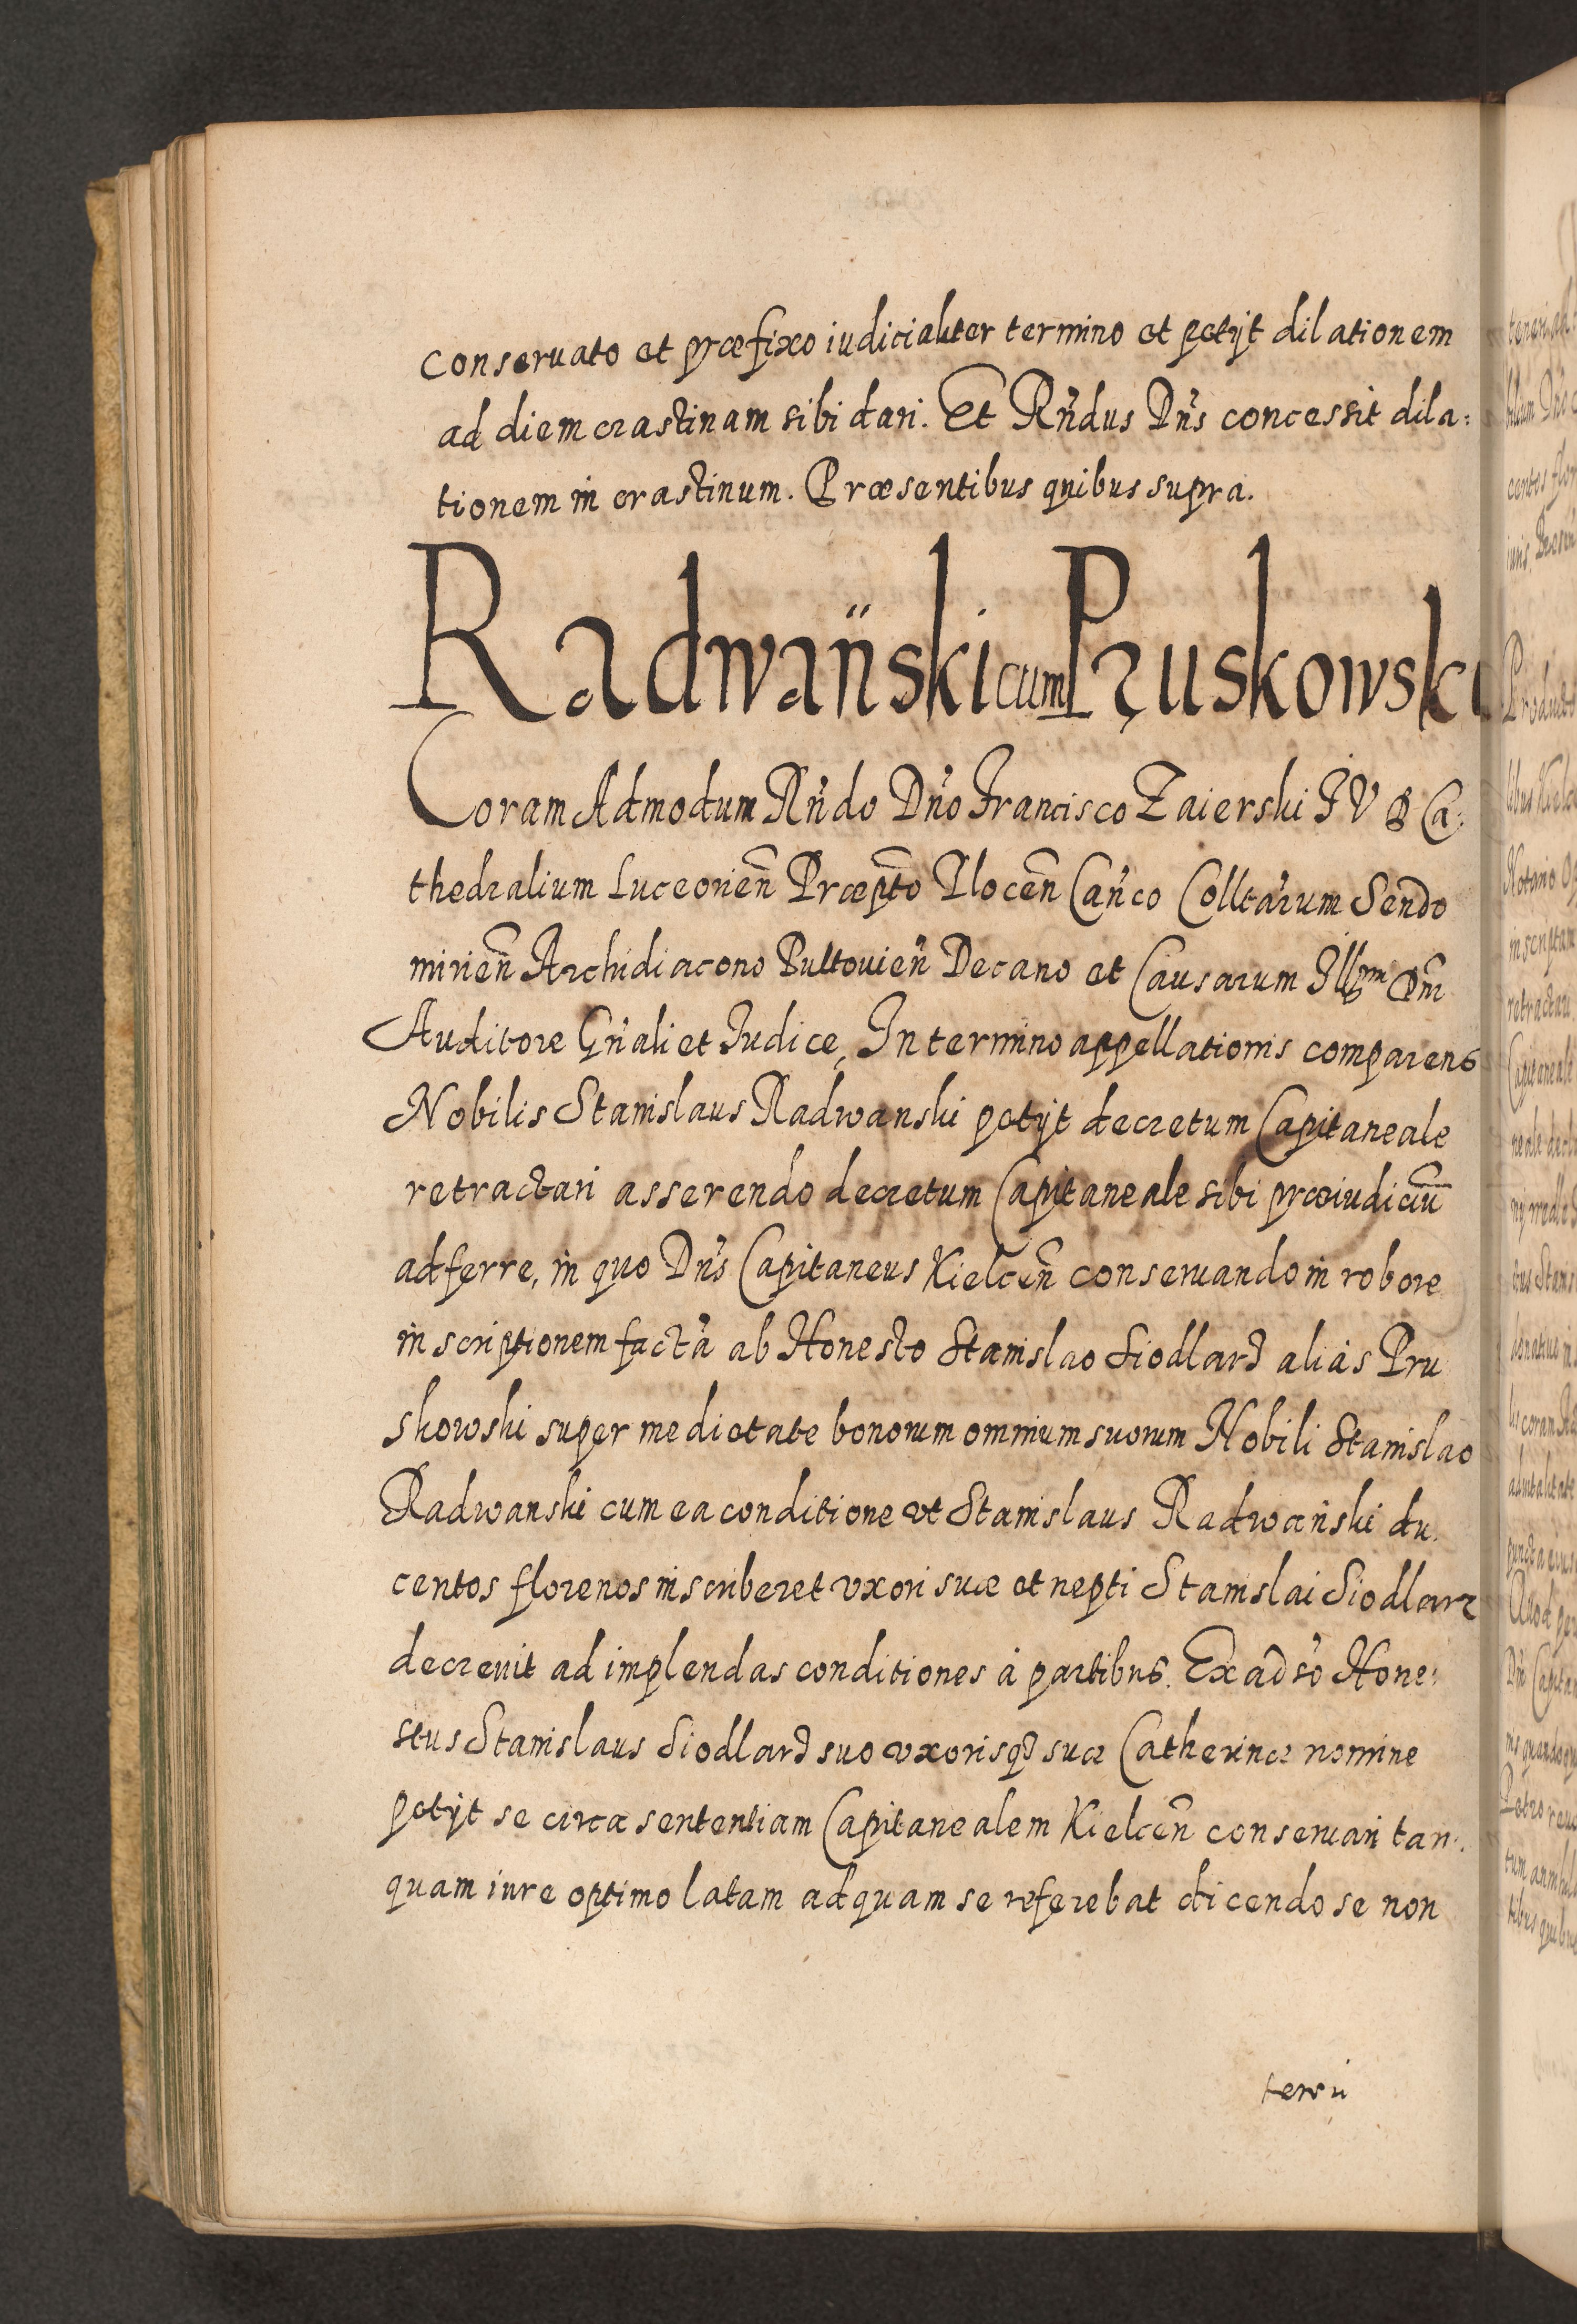 conseruato et præfixo iudicialiter termino et petijt dilationem
ad diem crastinam sibi dari. Et Rn̄dus Dn̄s concessit dila:
tionem in crastinum. Præsentibus quibus supra.
Radwański cum Pruskowski
Coram Admodum Rn̄do Dn̄o Francisco Zaierski J V D Ca:
thedralium Luceorien̄ Præpt̄o Plocen̄ Can̄co Colltārum Sendo
mirien̄ Archidiacono Pultouien̄ Decano et Causarum
Auditore Gn̄ali et Iudice, In termino appellationis comparens
Nobilis Stanislaus Radwanski petijt decretum Capitaneale
retractari asserendo decretum Capitaneale sibi præiudiciū
adferre, in quo Dn̄s Capitaneus Kielcen̄ conseruando in robore
inscriptionem factā ab Honesto Stanislao Siodlarz aliàs Pru
skowski super medietate bonorum omnium suorum Nobili Stanislao
Radwanski cum ea conditione vt Stanislaus Radwański du.
centos florenos inscriberet vxori suæ et nepti Stanislai Siodlarz
decreuit adimplendas conditiones à partibus. Ex aduso Hone:
stus Stanislaus Siodlarz suo vxorisqз suæ Catherinæ nomine
petijt se circa sententiam Capitanealem Kielcen̄ conseruari tan:
quam iure optimo latam ad quam se referebat dicendo se non